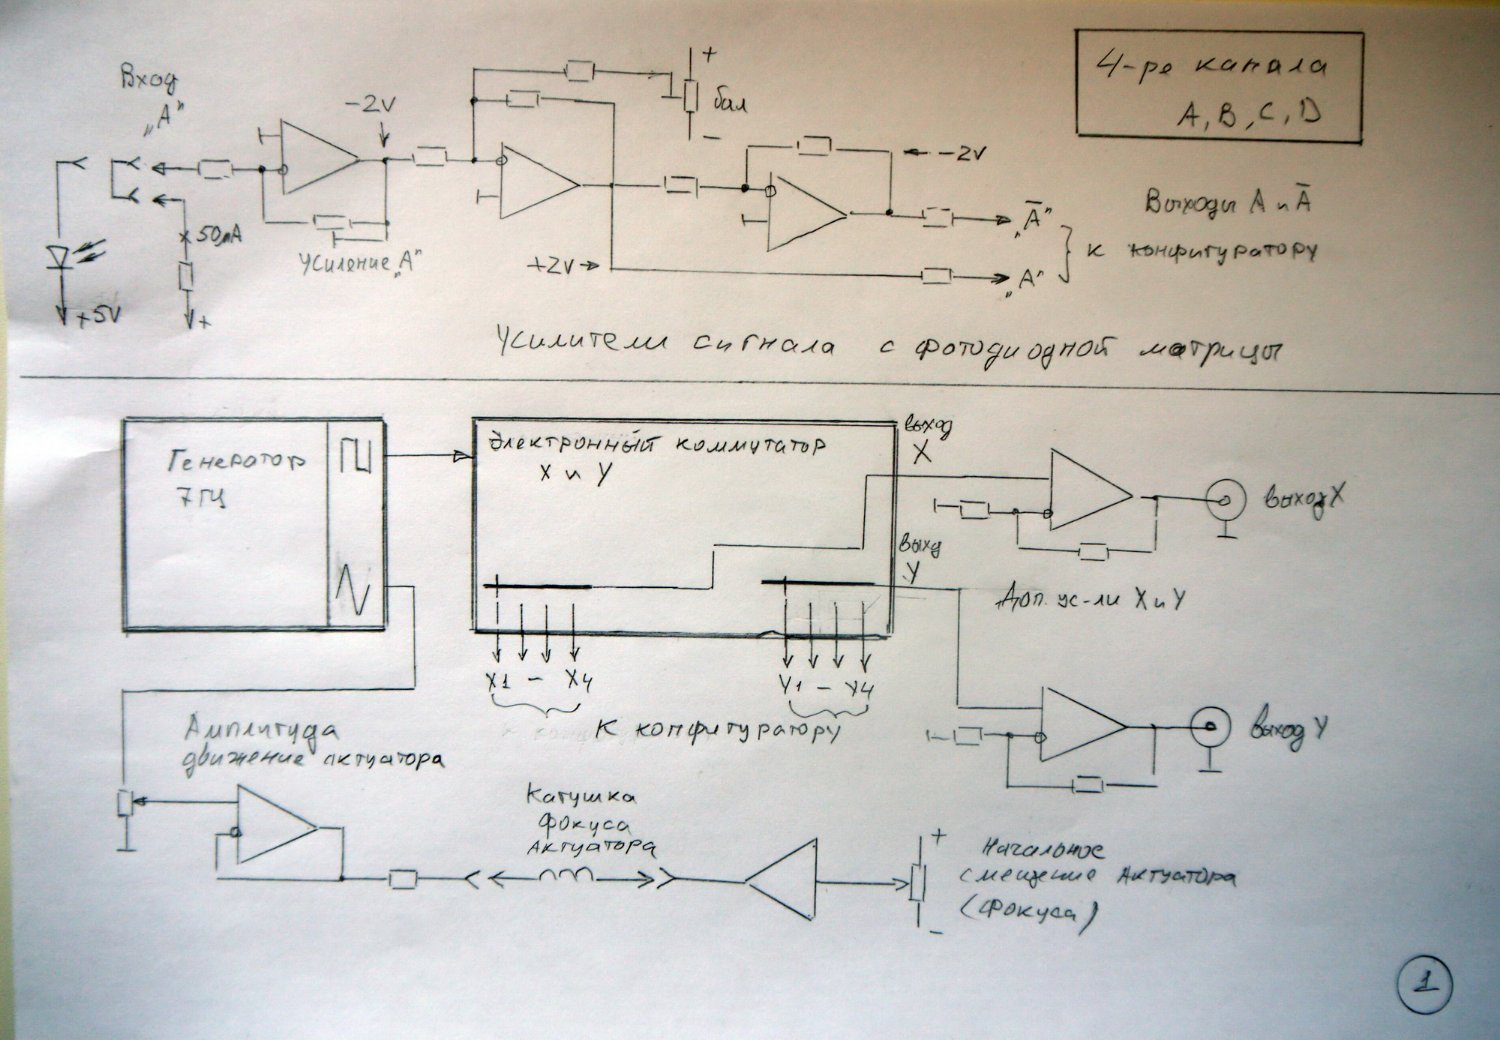 Вход
„А"
-2V
+
бал
-
4-ре канала
A, B, C, D
-2V
Выходы А и Ā
„Ā"
к конфигуратору
„А"
50µA
Усиление „А"
+2V
+5V
+
Усилители сигнала с фотодиодной матрицы
Генератор
7 ГЦ
Электронный коммутатор
X и Y
выход
X
выход X
выхд
Y
Доп. ус-ли X и Y
X1 - X4
Y1 - Y4
К конфигуратору
выход Y
Амплитуда
движение актуатора
Катушка
фокуса
Актуатора
+
Начальное
смещение Актуатора
(фокуса)
-
1